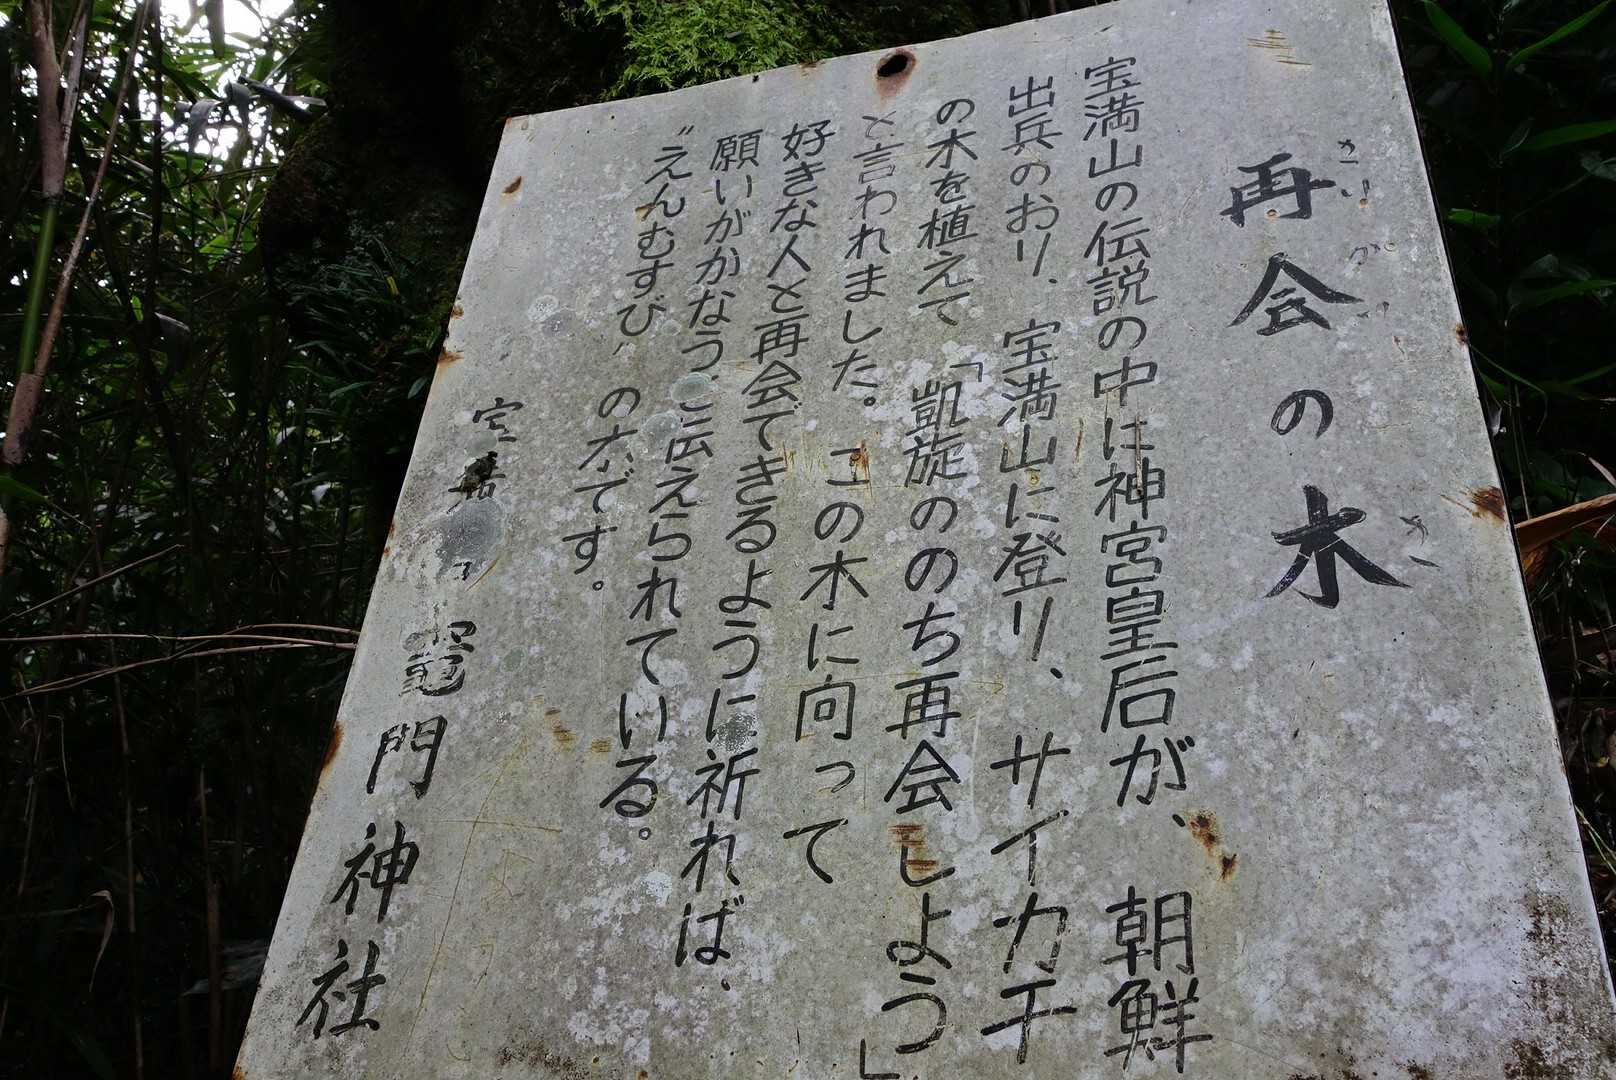 再会の木
さいかいのき
宝満山の伝説の中に神宮皇后が、朝鮮
出兵のおり、宝満山に登り、サイカチ
の木を植えて「凱旋ののち再会しよう」
と言われました。この木に向って
好きな人と再会できるように祈れば、
願いがかなうと伝えられている。
"えんむすび"の木です。
竈門神社